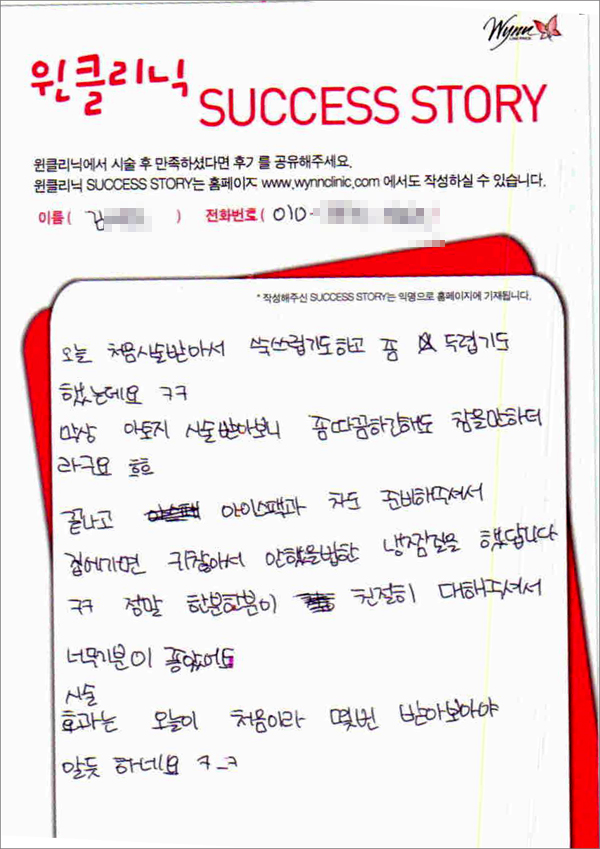 Wynn
윈클리닉
SUCCESS STORY
윈클리닉에서 시술 후 만족하셨다면 후기를 공유해주세요.
윈클리닉 SUCCESS STORY는 홈페이지 www.wynnclinic.com 에서도 작성하실 수 있습니다.
이름 ( 김 ) 전화번호 ( 010-
* 작성해주신 SUCCESS STORY는 익명으로 홈페이지에 기재됩니다.
오늘 처음시술받아서 쑥쓰럽기도하고 좀 두렵기도
했는데요 ㅋㅋ
막상 아토지 시술받아보니 좀따끔하긴해도 참을만하더
라구요 흐흐
끝나고 아이스팩과 차도 준비해주셔서
집에가면 귀찮아서 안했을법한 냉찜질을 했답니다
ㅋㅋ 정말 한분한분이 친절히 대해주셔서
너무기분이 좋았어요
시술
효과는 오늘이 처음이라 몇번 받아보아야
알듯 하네요 ㅋ_ㅋ